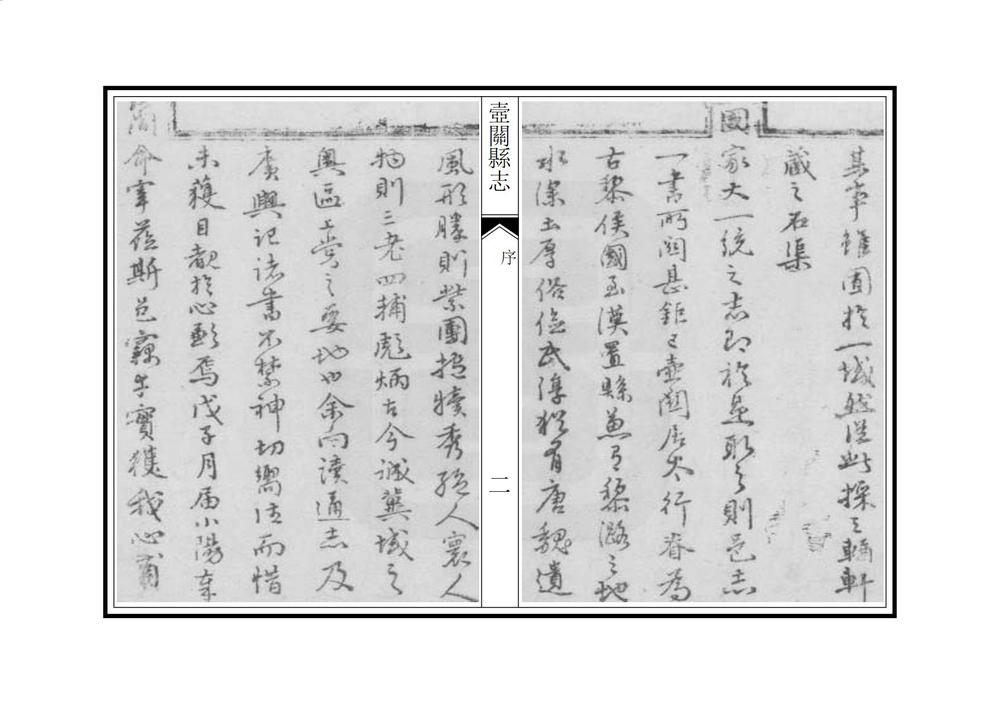 其事雖囿於一域然從此採之輶軒
藏之石渠
國家大一統之志即於是取之則邑志
一書所關甚鉅已壺關居太行脊為
古黎侯國至漢置縣兼有黎潞之地
水深土厚俗儉民淳猶有唐魏遺
壺關縣志
序
二
風形勝則紫團抱犢秀甲人寰人
物則三老四輔彪炳古今誠冀域之
奧區上黨之要地也余向讀通志及
廣輿記諸書不禁神切嚮往而惜
未獲目覩於心歉焉戊子月届小陽奉
簡
命宰蒞斯邑竊幸實獲我心甫